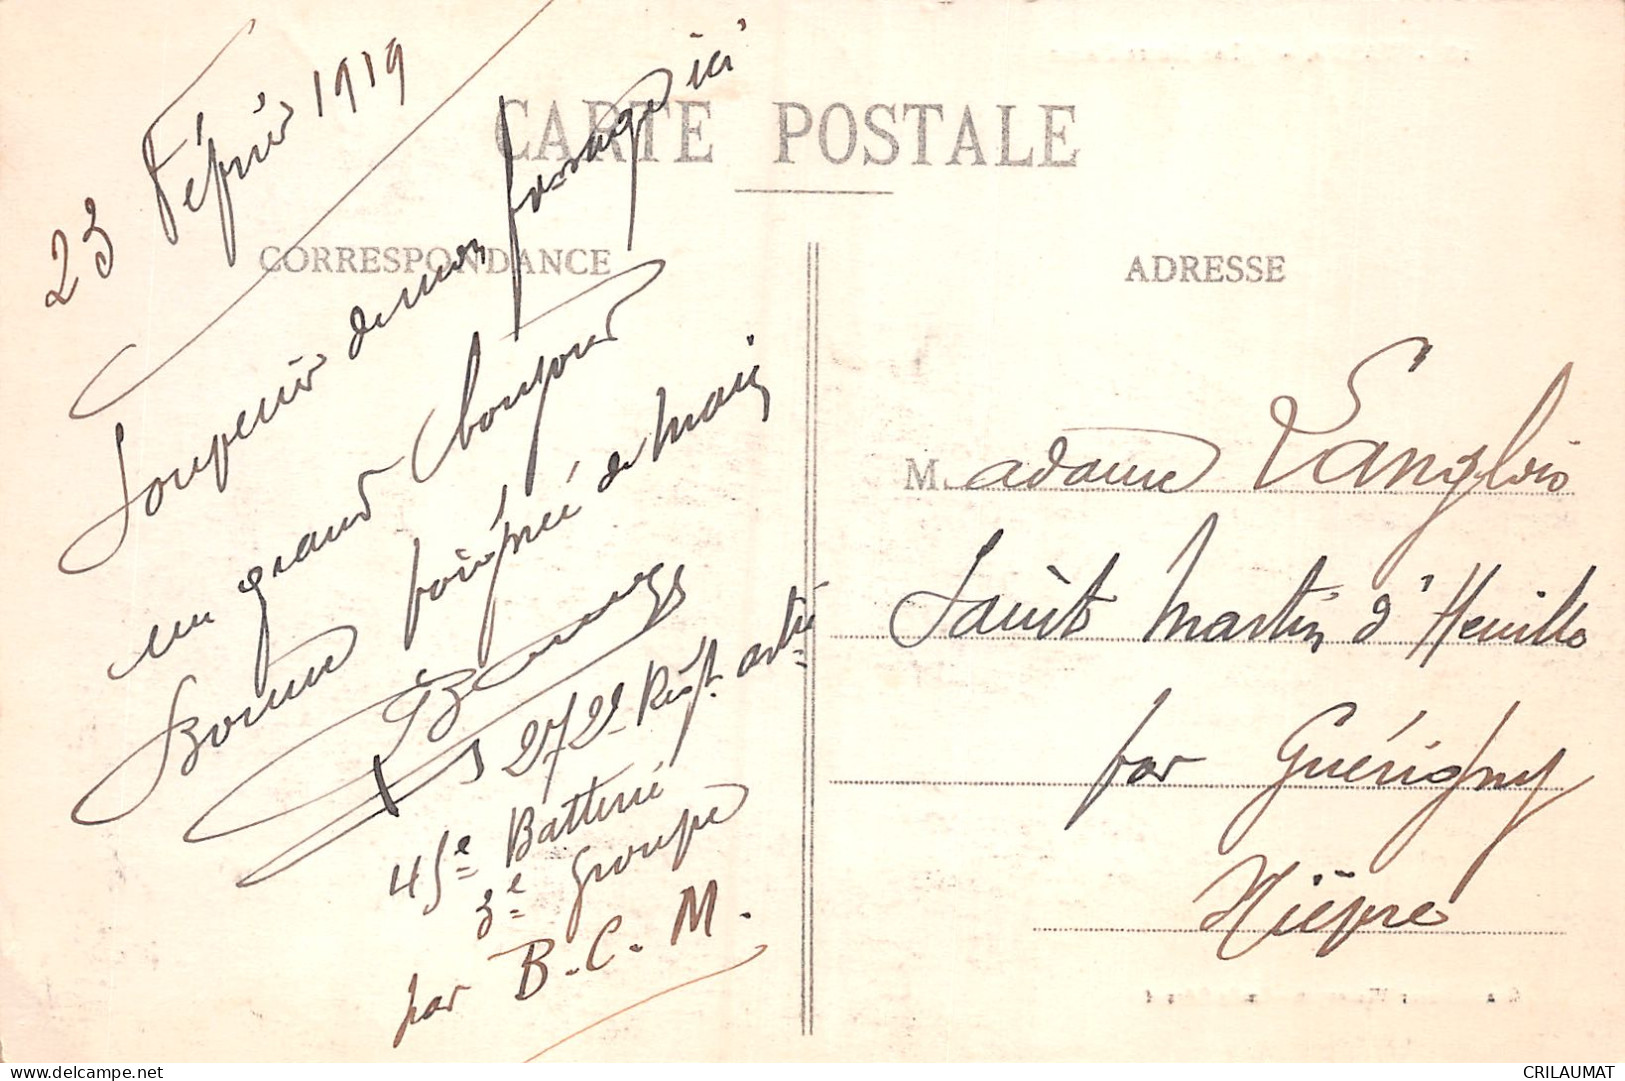 CARTE POSTALE
CORRESPONDANCE
ADRESSE
23 Février 1919
Souvenir de mon passage ici
un grand bonjour
Bonne poignée de main
272e Regt artie
45e Batterie
3e Groupe
par B.C.M.
Madame Langlois
Saint Martin d'Heuille
par Guérigny
Nièvre
delcampe.net
CRILAUMAT